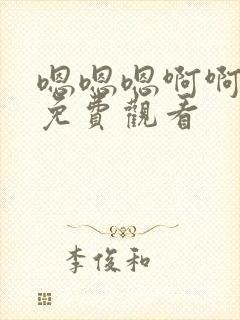 嗯嗯嗯啊啊
免費觀看
李俊和